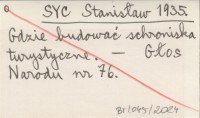 SYC Stanisław 1935.
Gdzie budować schroniska
turystyczne. — Głos
Narodu nr 76.
BJ/049/2024